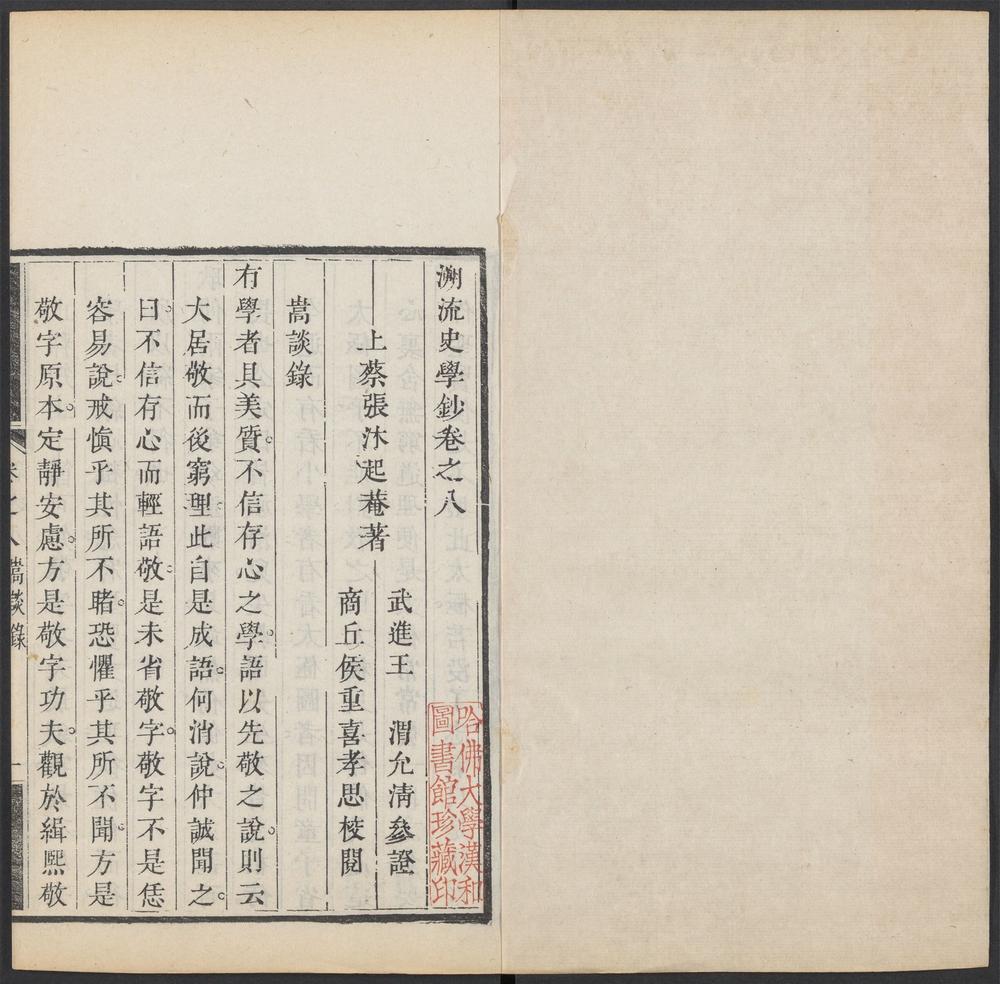 溯流史學鈔卷之八
上蔡張沐起菴著
武進王　渭允淸參證
商丘侯重喜孝思校閱
嵩談錄
有學者具美質。不信存心之學。語以先敬之說。則云
大居敬而後窮理。此自是成語。何消說。仲誠聞之。
曰。不信存心而輕語敬。是未省敬字。敬字不是恁
容易說。戒愼乎其所不睹。恐懼乎其所不聞。方是
敬字原本。定靜安慮。方是敬字功夫。觀於緝熙敬
卷之八
嵩談錄
一
哈佛大學漢和
圖書館珍藏印